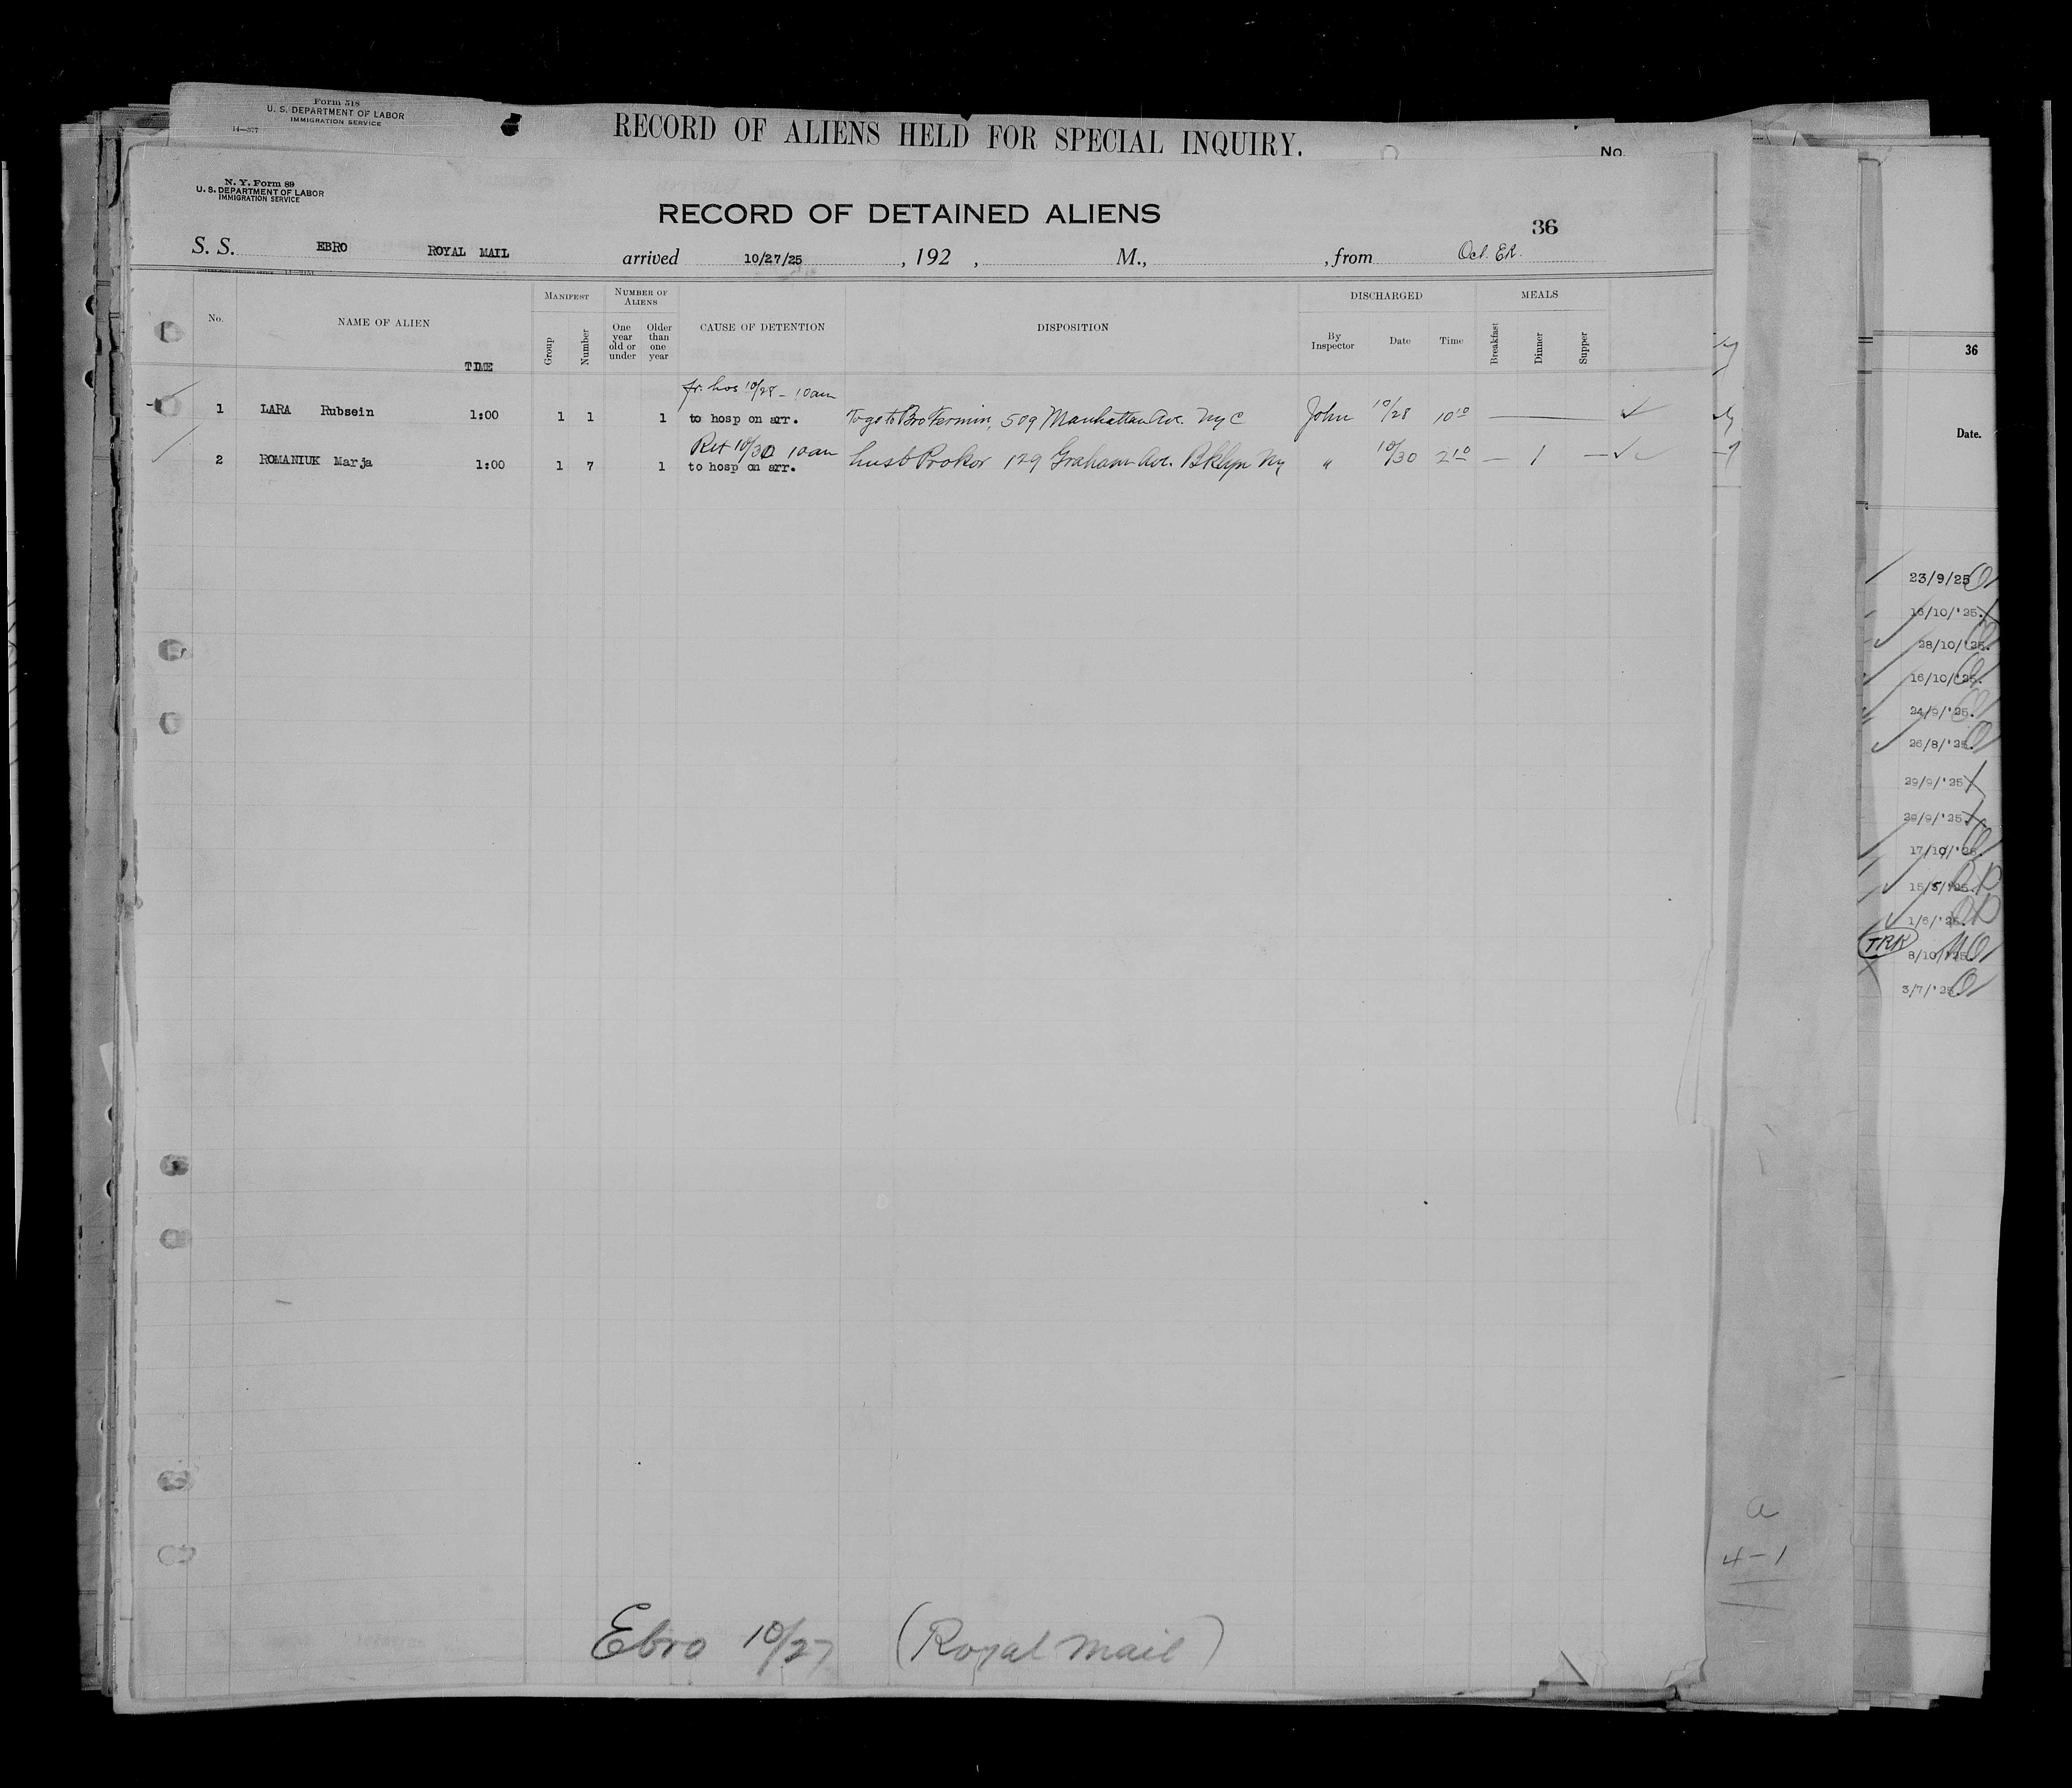 Form 518
U. S. DEPARTMENT OF LABOR
IMMIGRATION SERVICE
14—377
RECORD OF ALIENS HELD FOR SPECIAL INQUIRY.
No.
N. Y. Form 89
U. S. DEPARTMENT OF LABOR
IMMIGRATION SERVICE
RECORD OF DETAINED ALIENS
36
S. S. EBRO ROYAL MAIL arrived 10/27/25, 192 , M., , from Oct. ER.
No. NAME OF ALIEN TIME MANIFEST Group Number NUMBER OF ALIENS One year old or under Older than one year CAUSE OF DETENTION DISPOSITION DISCHARGED By Inspector Date Time MEALS Breakfast Dinner Supper
fr. hos 10/28 - 10am
1 LARA Rubsein 1:00 1 1 1 to hosp on arr. To go to Bro Fermin, 509 Manhattan Ave. NYC John 10/28 10 10
Ret 10/30 10am
2 ROMANIUK Marja 1:00 1 7 1 to hosp on arr. husb Prokor 129 Graham Ave. Bklyn NY " 10/30 2 10 — 1 —
Ebro 10/27 (Royal Mail)
a
4-1
36
Date.
23/9/25
16/10/'25.
28/10/'25.
16/10/'25.
24/9/'25.
26/8/'25.
29/9/'25
29/9/'25.
17/10/'25.
15/5/'25.
1/6/'25.
TRK
8/10/'25.
3/7/'25